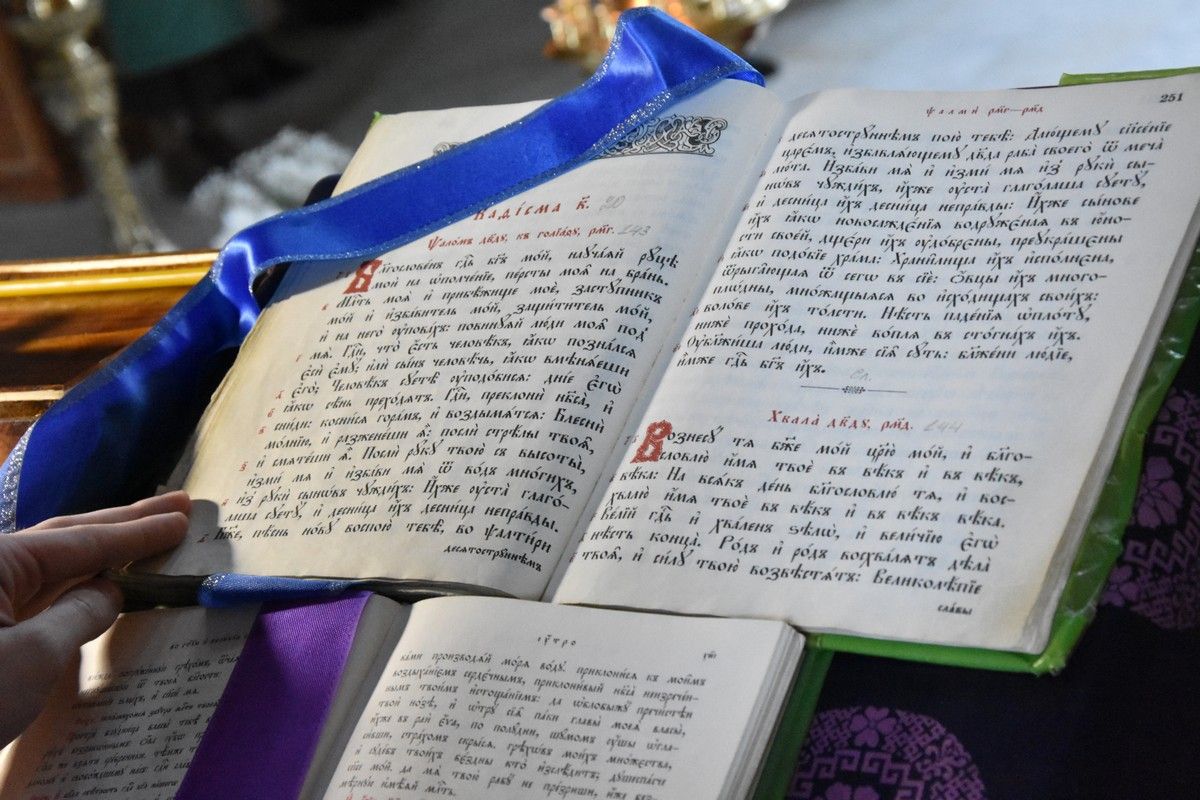 Каді́сма к҃.
20
Ѱало́мъ дв҃ду, къ голїа́ду, рм҃г.
143
Бл҃гослове́нъ гд҇ь бг҃ъ мо́й, науча́яй ру́цѣ
мои̑ на ѡ҆полче́нїе, пе́рсты моѧ̑ на бра́нь.
Мл҇ть моѧ̀ и҆ прибѣ́жище моѐ, засту́пникъ
мо́й и҆ и҆зба́витель мо́й, защи́титель мо́й,
и҆ на него̀ ᲂу҆пова́хъ: повину́ѧй лю́ди моѧ̑ под̾
мѧ̀. Гд҇и, что̀ є҆́сть человѣ́къ, ꙗ҆́кѡ позна́лсѧ
є҆сѝ є҆мꙋ̀; и҆лѝ сы́нъ человѣ́чь, ꙗ҆́кѡ вмѣнѧ́еши
є҆го̀; Человѣ́къ сꙋетѣ̀ ᲂу҆подо́бисѧ: дні́е є҆гѡ̀
ꙗ҆́кѡ сѣ́нь прехо́дѧтъ. Гд҇и, преклонѝ нб҃са̀, и҆
сни́ди: косни́сѧ гора́мъ, и҆ воздымѧ́тсѧ: Блеснѝ
мо́лнїю, и҆ разжене́ши ѧ҆̀: послѝ стрѣ́лы твоѧ̑,
и҆ смѧте́ши ѧ҆̀. Послѝ рꙋ́кꙋ твою̀ съ высоты̀,
и҆змѝ мѧ̀ и҆ и҆зба́ви мѧ̀ ѿ во́дъ мно́гихъ,
и҆з̾ рꙋкѝ сынѡ́въ чꙋжди́хъ: И҆́хже ᲂу҆ста̀ глаго́-
лаша сꙋетꙋ̀, и҆ десни́ца и҆́хъ десни́ца непра́вды.
Бж҃е, пѣ́снь но́вꙋ воспою̀ тебѣ̀, во ѱалти́ри
десѧтострꙋ́ннѣмъ
Ѱалмы̀ рм҃г—рм҃д
251
десѧтострꙋ́ннѣмъ пою̀ тебѣ̀: Даю́щемꙋ сп҃се́нїе
царє́мъ, и҆збавлѧ́ющемꙋ дв҃да раба̀ своего̀ ѿ меча̀
лю́та. И҆зба́ви мѧ̀ и҆ и҆змѝ мѧ̀ и҆з̾ рꙋкѝ сы-
нѡ́въ чꙋжди́хъ, и҆́хже ᲂу҆ста̀ глаго́лаша сꙋетꙋ̀,
и҆ десни́ца и҆́хъ десни́ца непра́вды: И҆́хже сы́нове
и҆́хъ ꙗ҆́кѡ новосаждє́нїѧ водрꙋжє́наѧ въ ю҆́но-
сти свое́й, дщє́ри и҆́хъ ᲂу҆дѡ́брены, преꙋкра́шєны
ꙗ҆́кѡ подо́бїе хра́ма: Храни̑лища и҆́хъ и҆спо́лнєна,
ѿрыга̑ющаѧ ѿ сегѡ̀ въ сїѐ: Ѻ҆́вцы и҆́хъ много-
плѡ́дны, мно́жащыѧсѧ во и҆схо́дищихъ свои́хъ:
воло́ве и҆́хъ то́лсти. Нѣ́сть паде́нїѧ ѡ҆пло́тꙋ,
нижѐ прохо́да, нижѐ во́плѧ въ сто́гнахъ и҆́хъ.
Оу҆блажи́ша лю́ди, и҆̀мже сїѧ̑ сꙋ́ть: бл҃же́ни лю́дїе,
и҆̀мже гд҇ь бг҃ъ и҆́хъ.
Сл.
Хвала̀ дв҃дꙋ, рм҃д.
144
Вознесꙋ́ тѧ бж҃е мо́й цр҃ю̀ мо́й, и҆ бл҃го-
словлю̀ и҆́мѧ твоѐ въ вѣ́къ и҆ въ вѣ́къ
вѣ́ка: На всѧ́къ де́нь бл҃гословлю́ тѧ, и҆ вос-
хвалю̀ и҆́мѧ твоѐ въ вѣ́къ и҆ въ вѣ́къ вѣ́ка.
Ве́лїй гд҇ь и҆ хва́ленъ ѕѣлѡ̀, и҆ вели́чїю є҆гѡ̀
нѣ́сть конца̀. Ро́дъ и҆ ро́дъ восхва́лѧтъ дѣла̀
твоѧ̑, и҆ си́лꙋ твою̀ возвѣстѧ́тъ: Великолѣ́пїе
сла́вы
Ꙋ҆́тро
ка́ми производѧ́й мо́рѧ во́дꙋ. приклони́сѧ къ мои̑мъ
воздыха́нїємъ серде́чнымъ, приклони́вый нб҃са̀ неизрече́н-
нымъ твои́мъ и҆стоща́нїемъ: да ѡ҆блобыжꙋ̀ пречи́стѣи
твоѝ но́зѣ, и҆ ѡ҆трꙋ̀ сїѧ̑ па́ки главы̀ моеѧ̀ власы̀,
и҆́хже въ раѝ є҆́ѵа, по полꙋ́дни, шꙋ́момъ ᲂу҆́шы ѡ҆гла-
си́вши, стра́хомъ скры́сѧ. грѣхѡ́въ мои́хъ мно́жества,
и҆ сꙋде́бъ твои́хъ бє́здны кто̀ и҆зслѣ́дитъ; дꙋшеспа́сче
сп҃се мо́й, да мѧ̀ твою̀ рабꙋ̀ не пре́зриши, и҆́же без-
мѣ́рнꙋю и҆мѣ́ѧй мл҇ть.